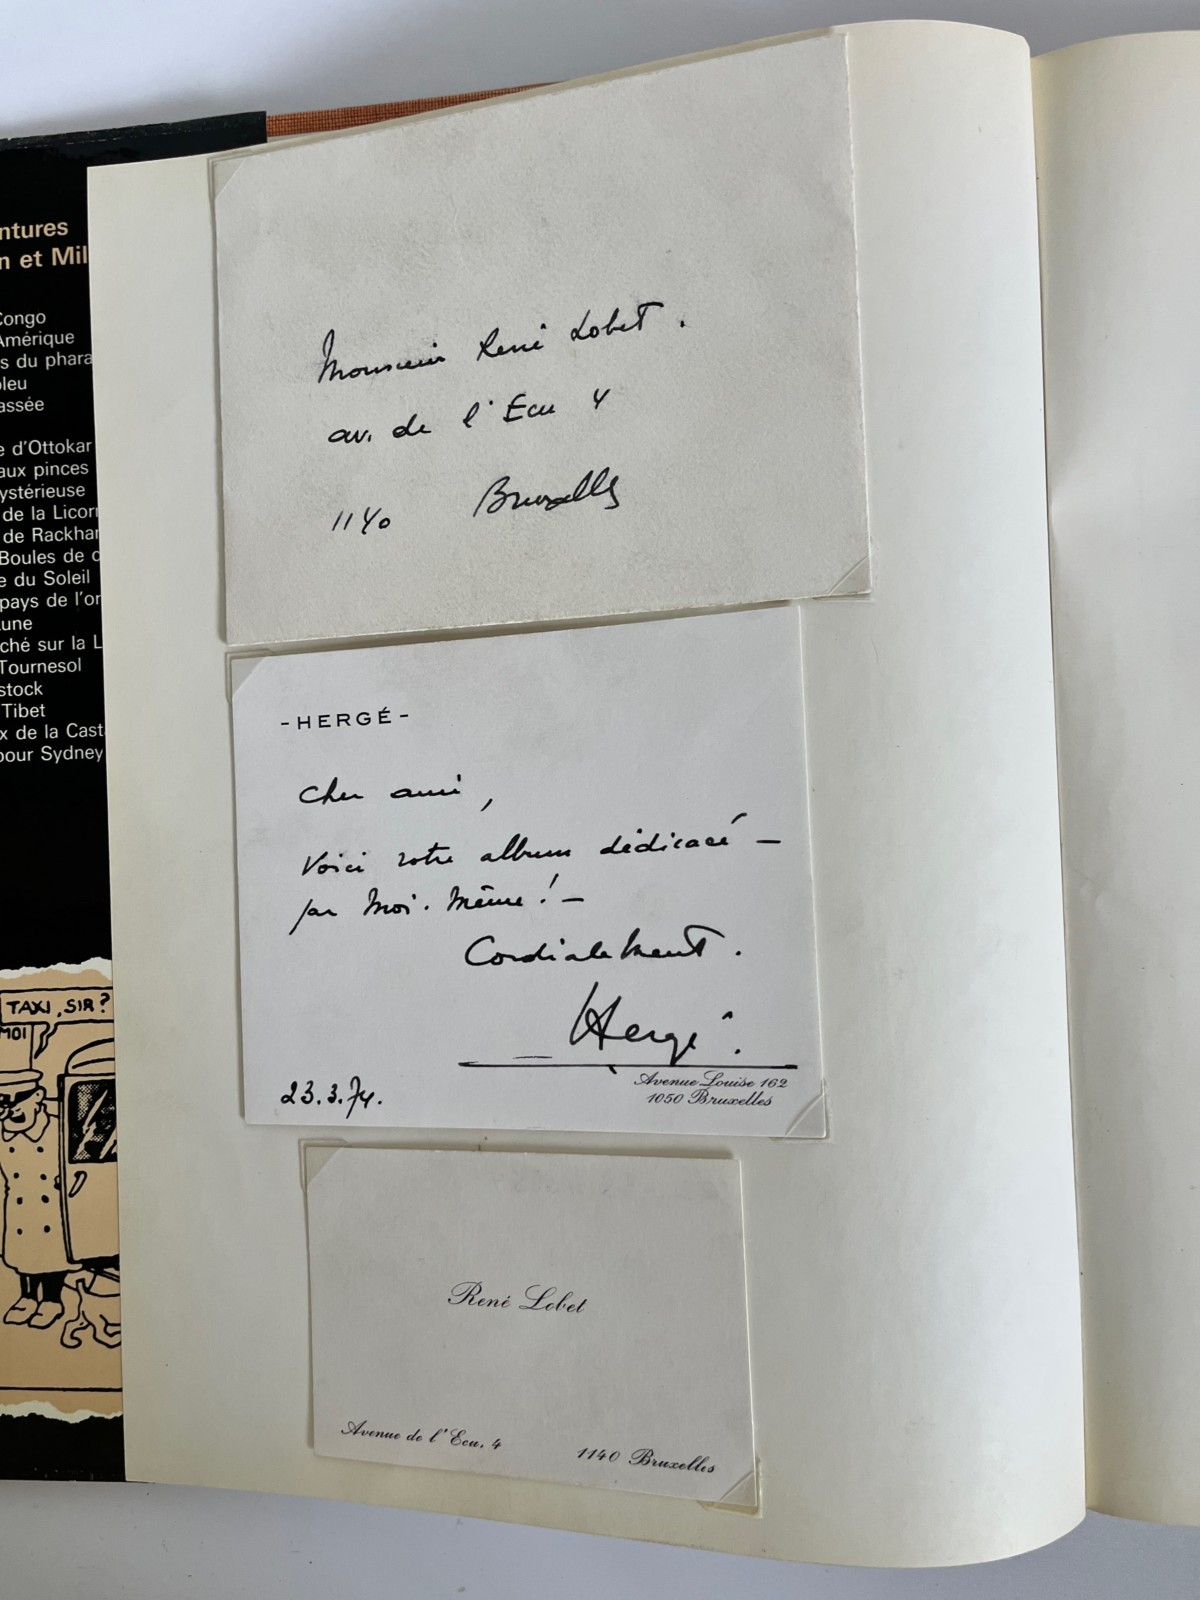 ntures
n et Mil
Congo
Amérique
s du phara
bleu
assée
e d'Ottokar
aux pinces
ystérieuse
de la Licorn
de Rackhar
Boules de c
e du Soleil
pays de l'or
Lune
ché sur la L
Tournesol
stock
Tibet
x de la Cast
pour Sydney
TAXI, SIR?
MOI
Monsieur René Lobet.
av. de l'Ecu 4
1140 Bruxelles
-HERGÉ-
Cher ami,
Voici votre album dédicacé —
par moi-même! —
Cordialement.
Hergé.
23.3.74.
Avenue Louise 162
1050 Bruxelles
René Lobet
Avenue de l'Ecu, 4
1140 Bruxelles